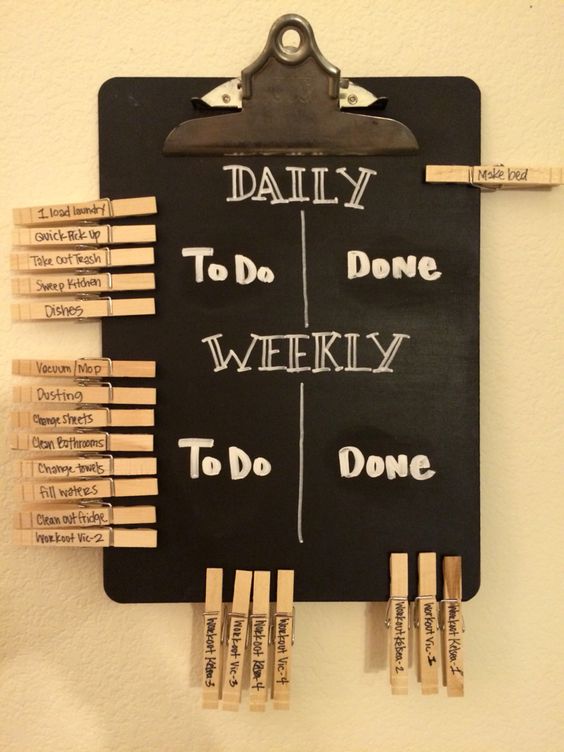 DAILY
Make bed
1 load laundry
Quick Pick Up
Take Out Trash
Sweep Kitchen
Dishes
To Do
DONE
WEEKLY
Vacuum/Mop
Dusting
Change Sheets
Clean Bathrooms
Change towels
fill waters
Clean out fridge
Workout Vic-2
To Do
DONE
Workout Kelsea-3
Workout Vic-3
Workout Kelsea-4
Workout Vic-4
Workout Kelsea-2
Workout Vic-1
Workout Kelsea-1